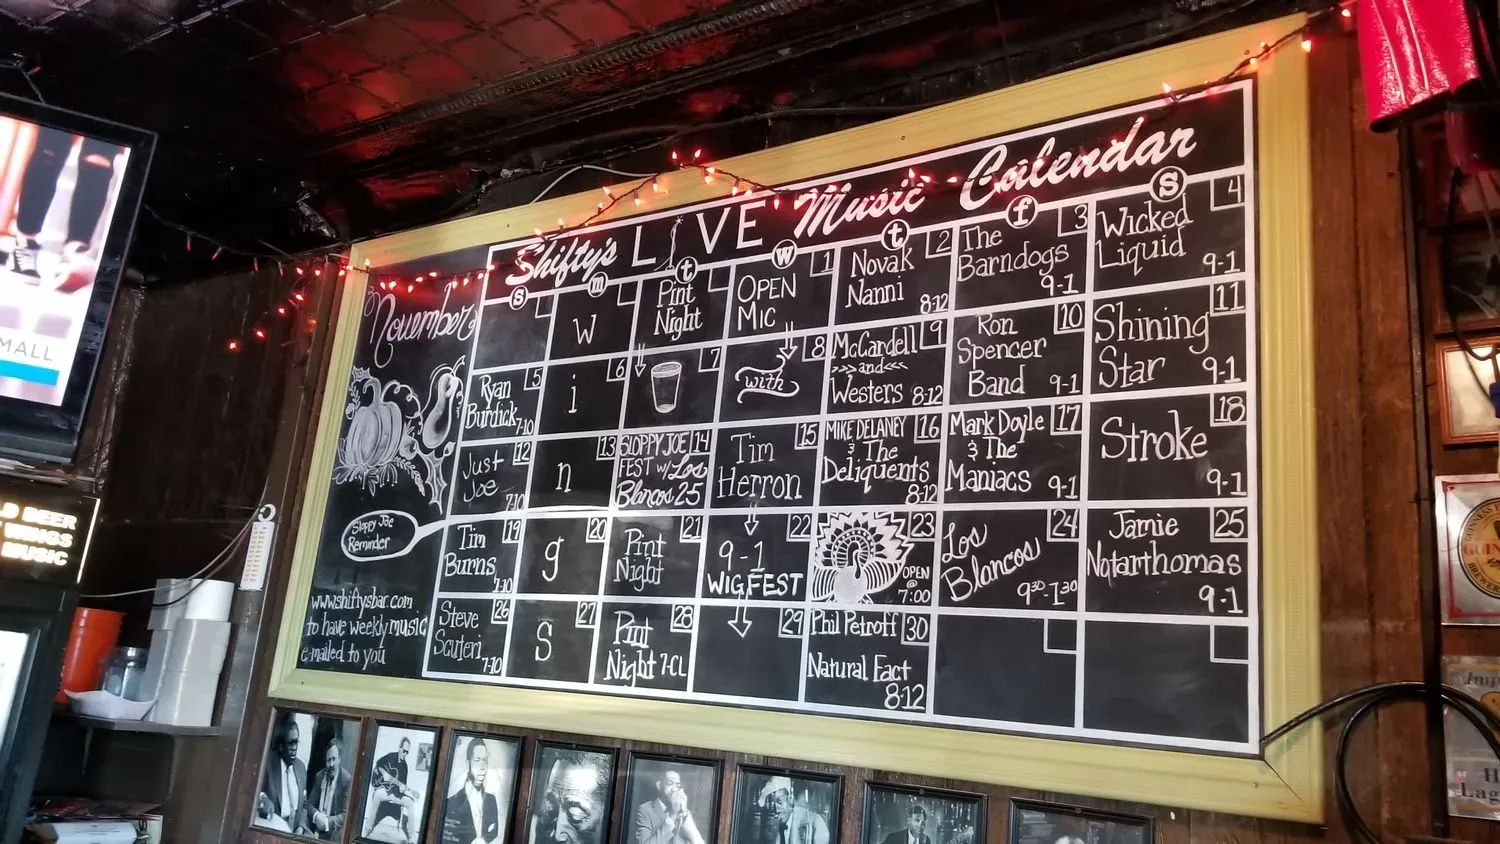 Shifty's LIVE Music Calendar
November
s m t w t f s
W
Pint
Night
1
OPEN
MIC
2
Novak
Nanni
8-12
3
The
Barndogs
9-1
4
Wicked
Liquid
9-1
5
Ryan
Burdick
7-10
6
i
7
8
with
9
McCardell
>>>and<<<
Westers 8-12
10
Ron
Spencer
Band 9-1
11
Shining
Star 9-1
12
Just
Joe
7-10
13
n
14
SLOPPY JOE
FEST w/ Los
Blancos 25
15
Tim
Herron
16
MIKE DELANEY
& The
Deliquents
8-12
17
Mark Doyle
& The
Maniacs
9-1
18
Stroke
9-1
19
Tim
Burns
7-10
20
g
21
Pint
Night
22
9-1
WIGFEST
23
OPEN
@
7:00
24
Los
Blancos
9:30-1:30
25
Jamie
Notarthomas
9-1
26
Steve
Scuteri
7-10
27
S
28
Pint
Night 7-CL
29
30
Phil Petroff
Natural Fact
8-12
Sloppy Joe
Reminder
www.shiftysbar.com
to have weekly music
e-mailed to you
MALL
D BEER
WINGS
MUSIC